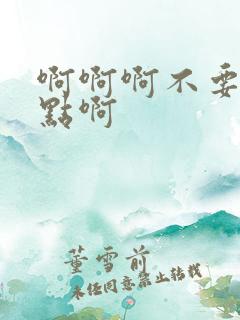 啊啊啊不要
點啊
董雪前
未经同意禁止转载